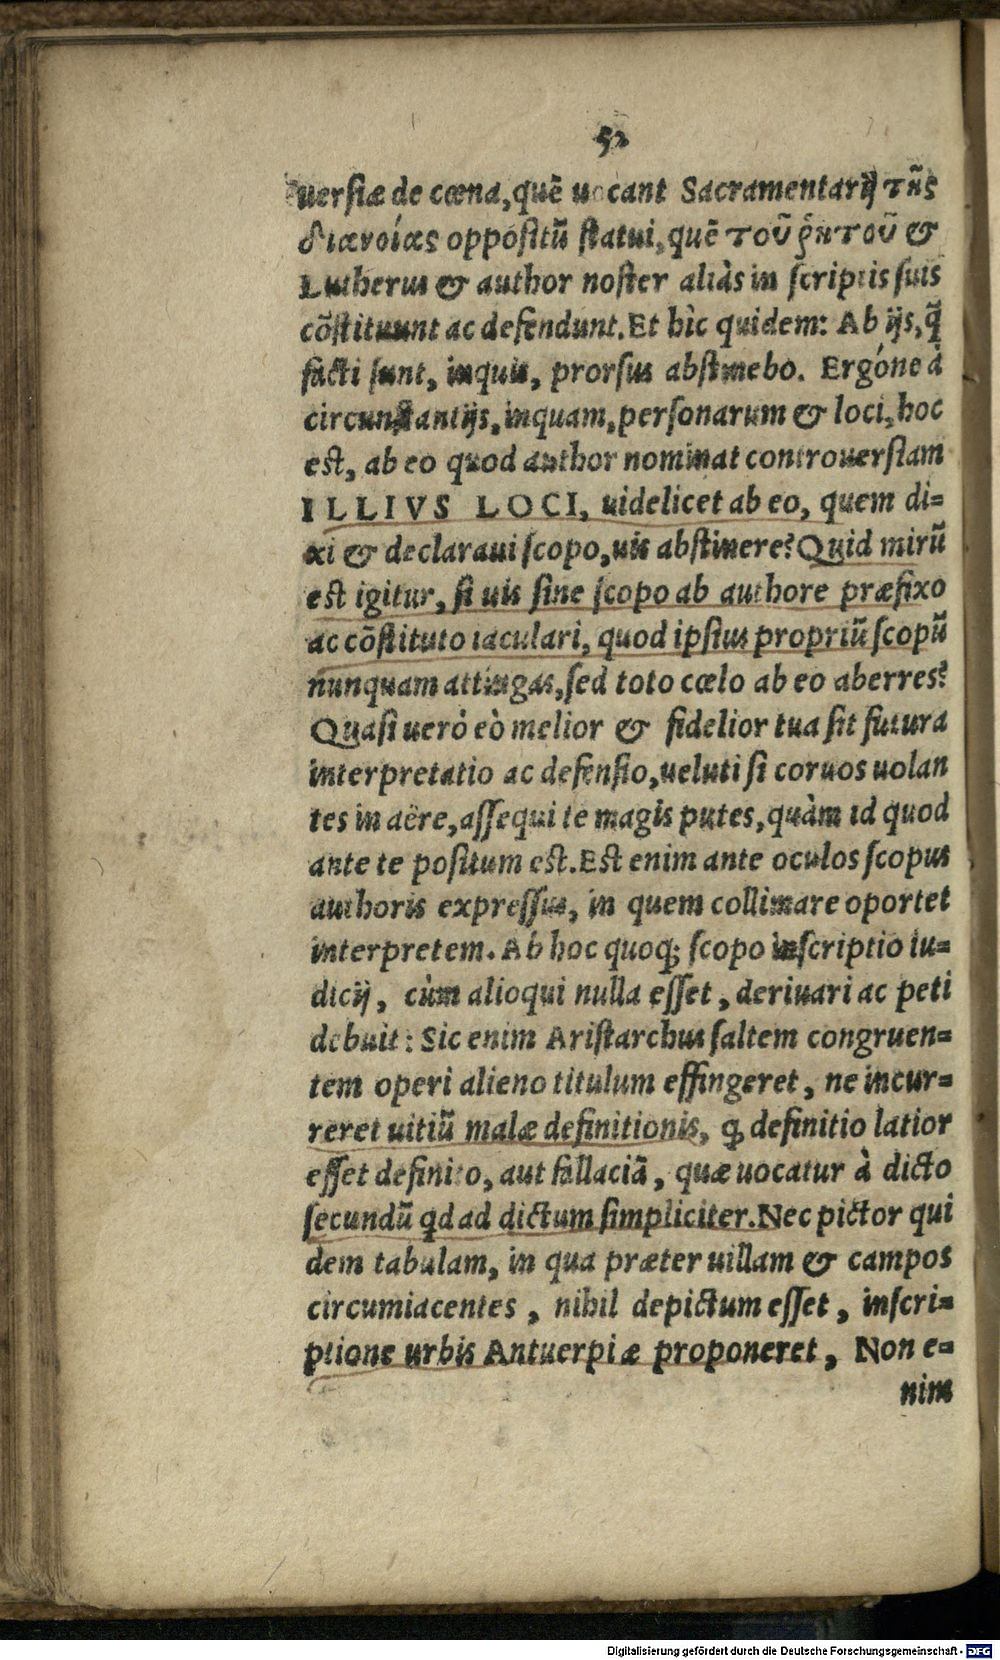 52
uersiæ de cœna, quē uocant Sacramentarij τῆς
διανοίας oppositū statui, quē τοῦ ῥητοῦ &
Lutherus & author noster aliàs in scriptis suis
cōstituunt ac defendunt. Et hìc quidem: Ab ijs, q̃
facti sunt, inquis, prorsus abstinebo. Ergóne à
circunstantijs, inquam, personarum & loci, hoc
est, ab eo quod author nominat controuersiam
ILLIVS LOCI, uidelicet ab eo, quem di=
xi & declaraui scopo, uis abstinere? Quid mirū
est igitur, si uis sine scopo ab authore præfixo
ac cōstituto iaculari, quod ipsius propriū scopū
nunquam attingas, sed toto cœlo ab eo aberres?
Quasi uerò eò melior & fidelior tua sit futura
interpretatio ac defensio, ueluti si coruos uolan
tes in aëre, assequi te magis putes, quàm id quod
ante te positum est. Est enim ante oculos scopus
authoris expressus, in quem collimare oportet
interpretem. Ab hoc quoq; scopo inscriptio iu=
dicij, cùm alioqui nulla esset, deriuari ac peti
debuit: Sic enim Aristarchus saltem congruen=
tem operi alieno titulum effingeret, ne incur=
reret uitiū malæ definitionis, ꝙ definitio latior
esset definito, aut fallaciā, quæ uocatur à dicto
secundū qd ad dictum simpliciter. Nec pictor qui
dem tabulam, in qua præter uillam & campos
circumiacentes, nihil depictum esset, inscri=
ptione urbis Antuerpiæ proponeret, Non e=
nim
Digitalisierung gefördert durch die Deutsche Forschungsgemeinschaft - DFG